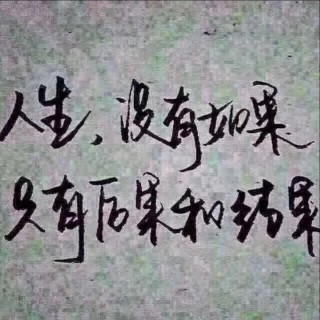 人生,没有如果
只有后果和结果